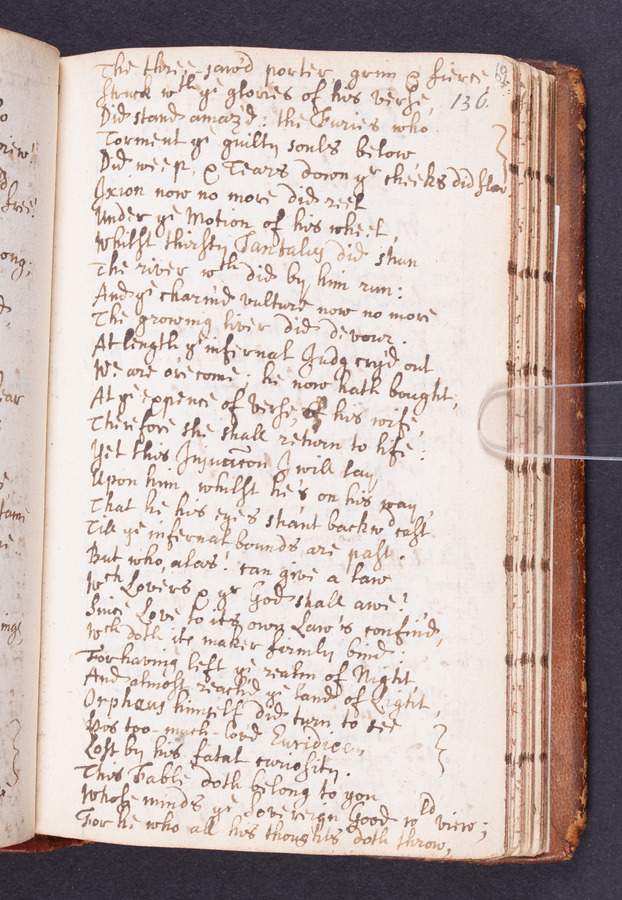 The three-jaw'd porter, grim & fierce
69
136.
Struck wth ye glories of his verse,
Did stand amaz'd: the Furies who
Torment ye guilty souls below
Did weep, & Tears down yr cheeks did flow.
Ixion now no more did reel
Under ye Motion of his wheel,
Whilst thirsty Tantalus did shun
The river wch did by him run:
And ye charm'd vulture now no more
The growing liver did devour.
At length ye infernal Judg cry'd out
We are o're come; he now hath bought,
At ye expence of verse, his wife,
Therefore she shall return to life:
Yet this Injunction I will lay
Upon him, whilst he's on his way,
That he his eyes shan't backwd cast
Till ye infernal bounds are past.
But who, alas! can give a law
Wch Lovers & yr God shall awe?
Since Love to its own Law's confin'd,
Wch doth its maker firmly bind:
For having left ye realm of Night
And almost reach'd ye land of Light,
Orpheus himself did turn to see
His too-much-lov'd Euridice,
Lost by his fatal curiosity.
This Fable doth belong to you
Whose minds ye Sovereign Good wld view;
For he who all his thoughts doth throw,